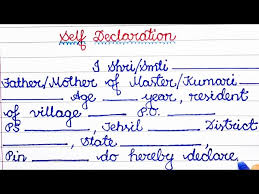 Self Declaration
I Shri/Smti ________
Father/Mother of Master/Kumari
________ Age ____ year, resident
of village ________ P.O. ________
PS ________, Tehsil ________ District
________, State ________,
Pin ________ do hereby declare